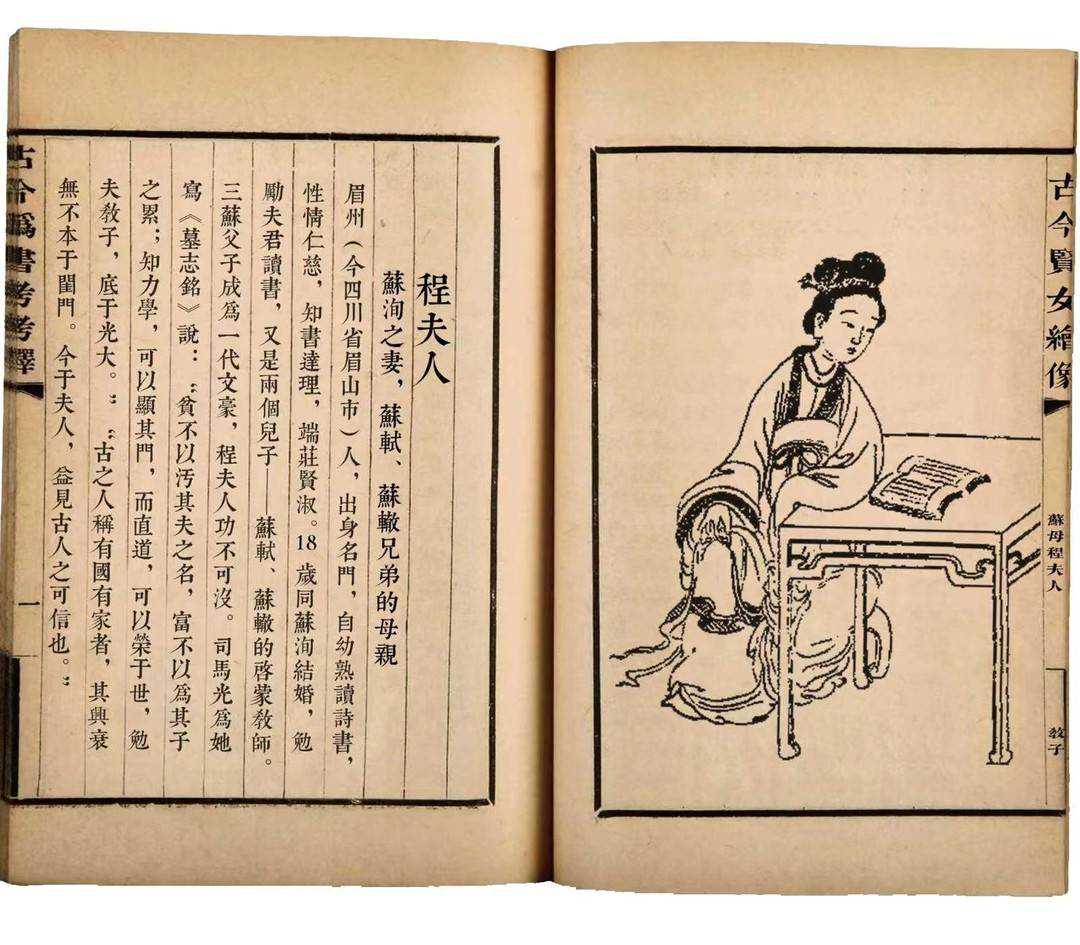 古今賢女繪像
蘇母程夫人
教子
程夫人
蘇洵之妻，蘇軾、蘇轍兄弟的母親
眉州（今四川省眉山市）人，出身名門，自幼熟讀詩書，
性情仁慈，知書達理，端莊賢淑。18歲同蘇洵結婚，勉
勵夫君讀書，又是兩個兒子——蘇軾、蘇轍的啓蒙教師。
三蘇父子成爲一代文豪，程夫人功不可沒。司馬光爲她
寫《墓志銘》說：“貧不以汚其夫之名，富不以爲其子
之累；知力學，可以顯其門，而直道，可以榮于世，勉
夫教子，底于光大。”“古之人稱有國有家者，其興衰
無不本于閨門。今于夫人，益見古人之可信也。”
古今僞書考考釋
一